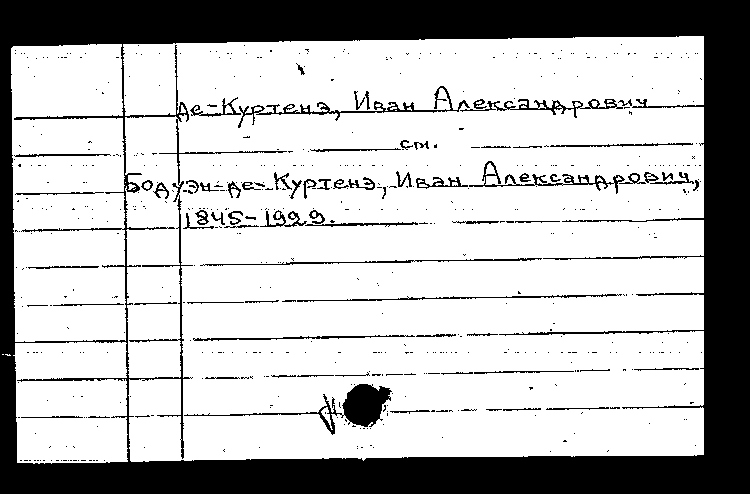 де-Куртенэ, Иван Александрович
см.
Бодуэн-де-Куртенэ, Иван Александрович,
1845-1929.